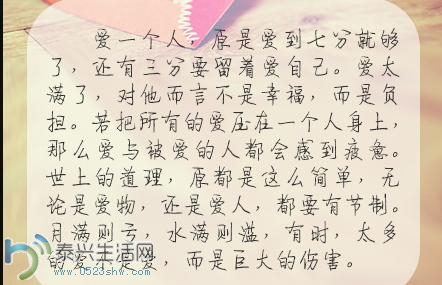 爱一个人，原是爱到七分就够
了，还有三分要留着爱自己。爱太
满了，对他而言不是幸福，而是负
担。若把所有的爱压在一个人身上，
那么爱与被爱的人都会感到疲惫。
世上的道理，原都是这么简单，无
论是爱物，还是爱人，都要有节制。
月满则亏，水满则溢，有时，太多
的爱不是爱，而是巨大的伤害。
泰兴生活网
www.0523shw.com